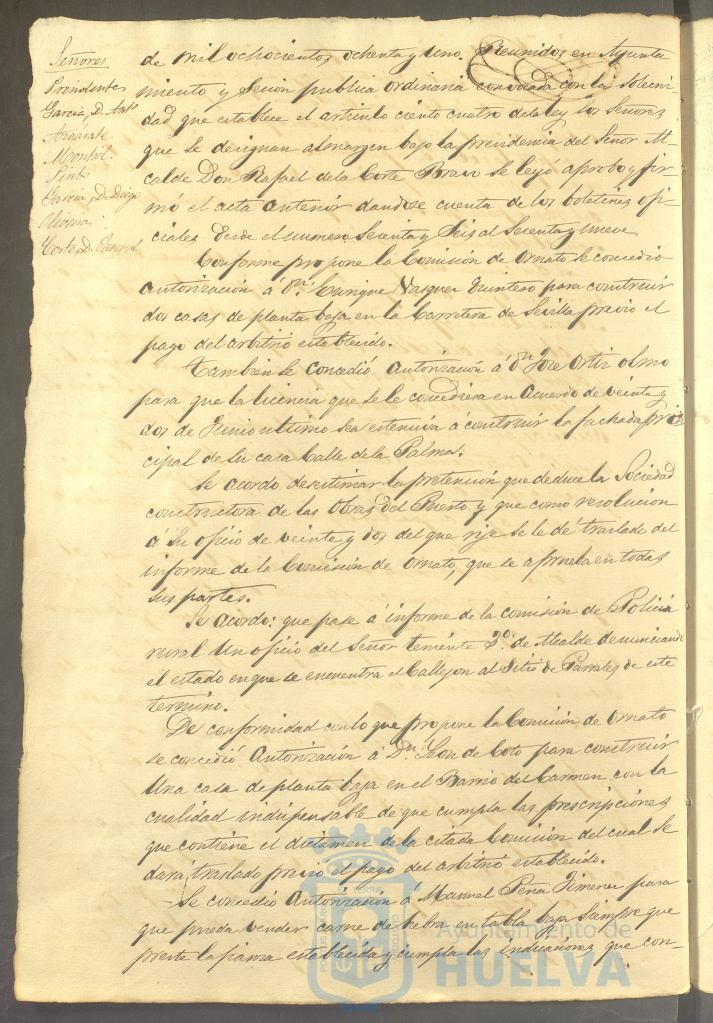 Señores
Presidente
Garcia, D. Antº
Monfil
Pinto
Garcia, D. Diego
Oliveira
Corte, D. Pascual
de mil ochocientos ochenta y uno. Reunidos en Ayunta
miento y Secion publica Ordinaria convocada con la Solecni
dad que establece el articulo ciento cuatro de la ley los Señores
que se designan al margen bajo la presidencia del Señor Al-
calde Don Rafael de la Corte Bravo se leyó aprobó y fir
mó el acta anterior dandose cuenta de los boletines ofi-
ciales desde el numero Setenta y Seis al Setenta y nueve
Conforme propone la Comision de Ornato se concedió
autorización á Dn. Enrique Vasquez Quintero para construir
dos casas de planta baja en la Carretera de Sevilla previo el
pago del arbitrio establecido.
Tambien se concedió autorización á Dn Jose Ortiz olmo
para que la licencia que se le concediera en Acuerdo de veinte y
dos de Junio ultimo sea estensiva á construir la fachada prin
cipal de su casa Calle de la Palma.
Se acordo desestimar la pretención que deduce la Sociedad
constructora de las Obras del Puerto y que como resolucion
á su oficio de veinte y dos del que rije se le dé traslado del
informe de la Comisión de Ornato, que se aprueba en todas
sus partes.
Se acordo: que pase á informe de la comisión de Policia
rural Un oficio del Señor teniente 2º de Alcalde denunciando
el estado en que se encuentra el Callejon al Sitio de Parrales de este
termino.
De conformidad con lo que propone la Comisión de Ornato
se concedió autorización á Dn. Leon de Coto para construir
Una casa de planta baja en el Barrio del Carmen con la
cualidad indispensable de que cumpla las prescripciones
que contiene el dictamen de la citada Comisión del cual se
dará traslado previo el pago del arbitrio establecido.
Se concedió Autorización á Manuel Pena Jimenez para
que pueda vender carne de hebra en tabla baja siempre que
preste la fianza establecida y cumpla las indicaciones que con-
Ayuntamiento de
HUELVA